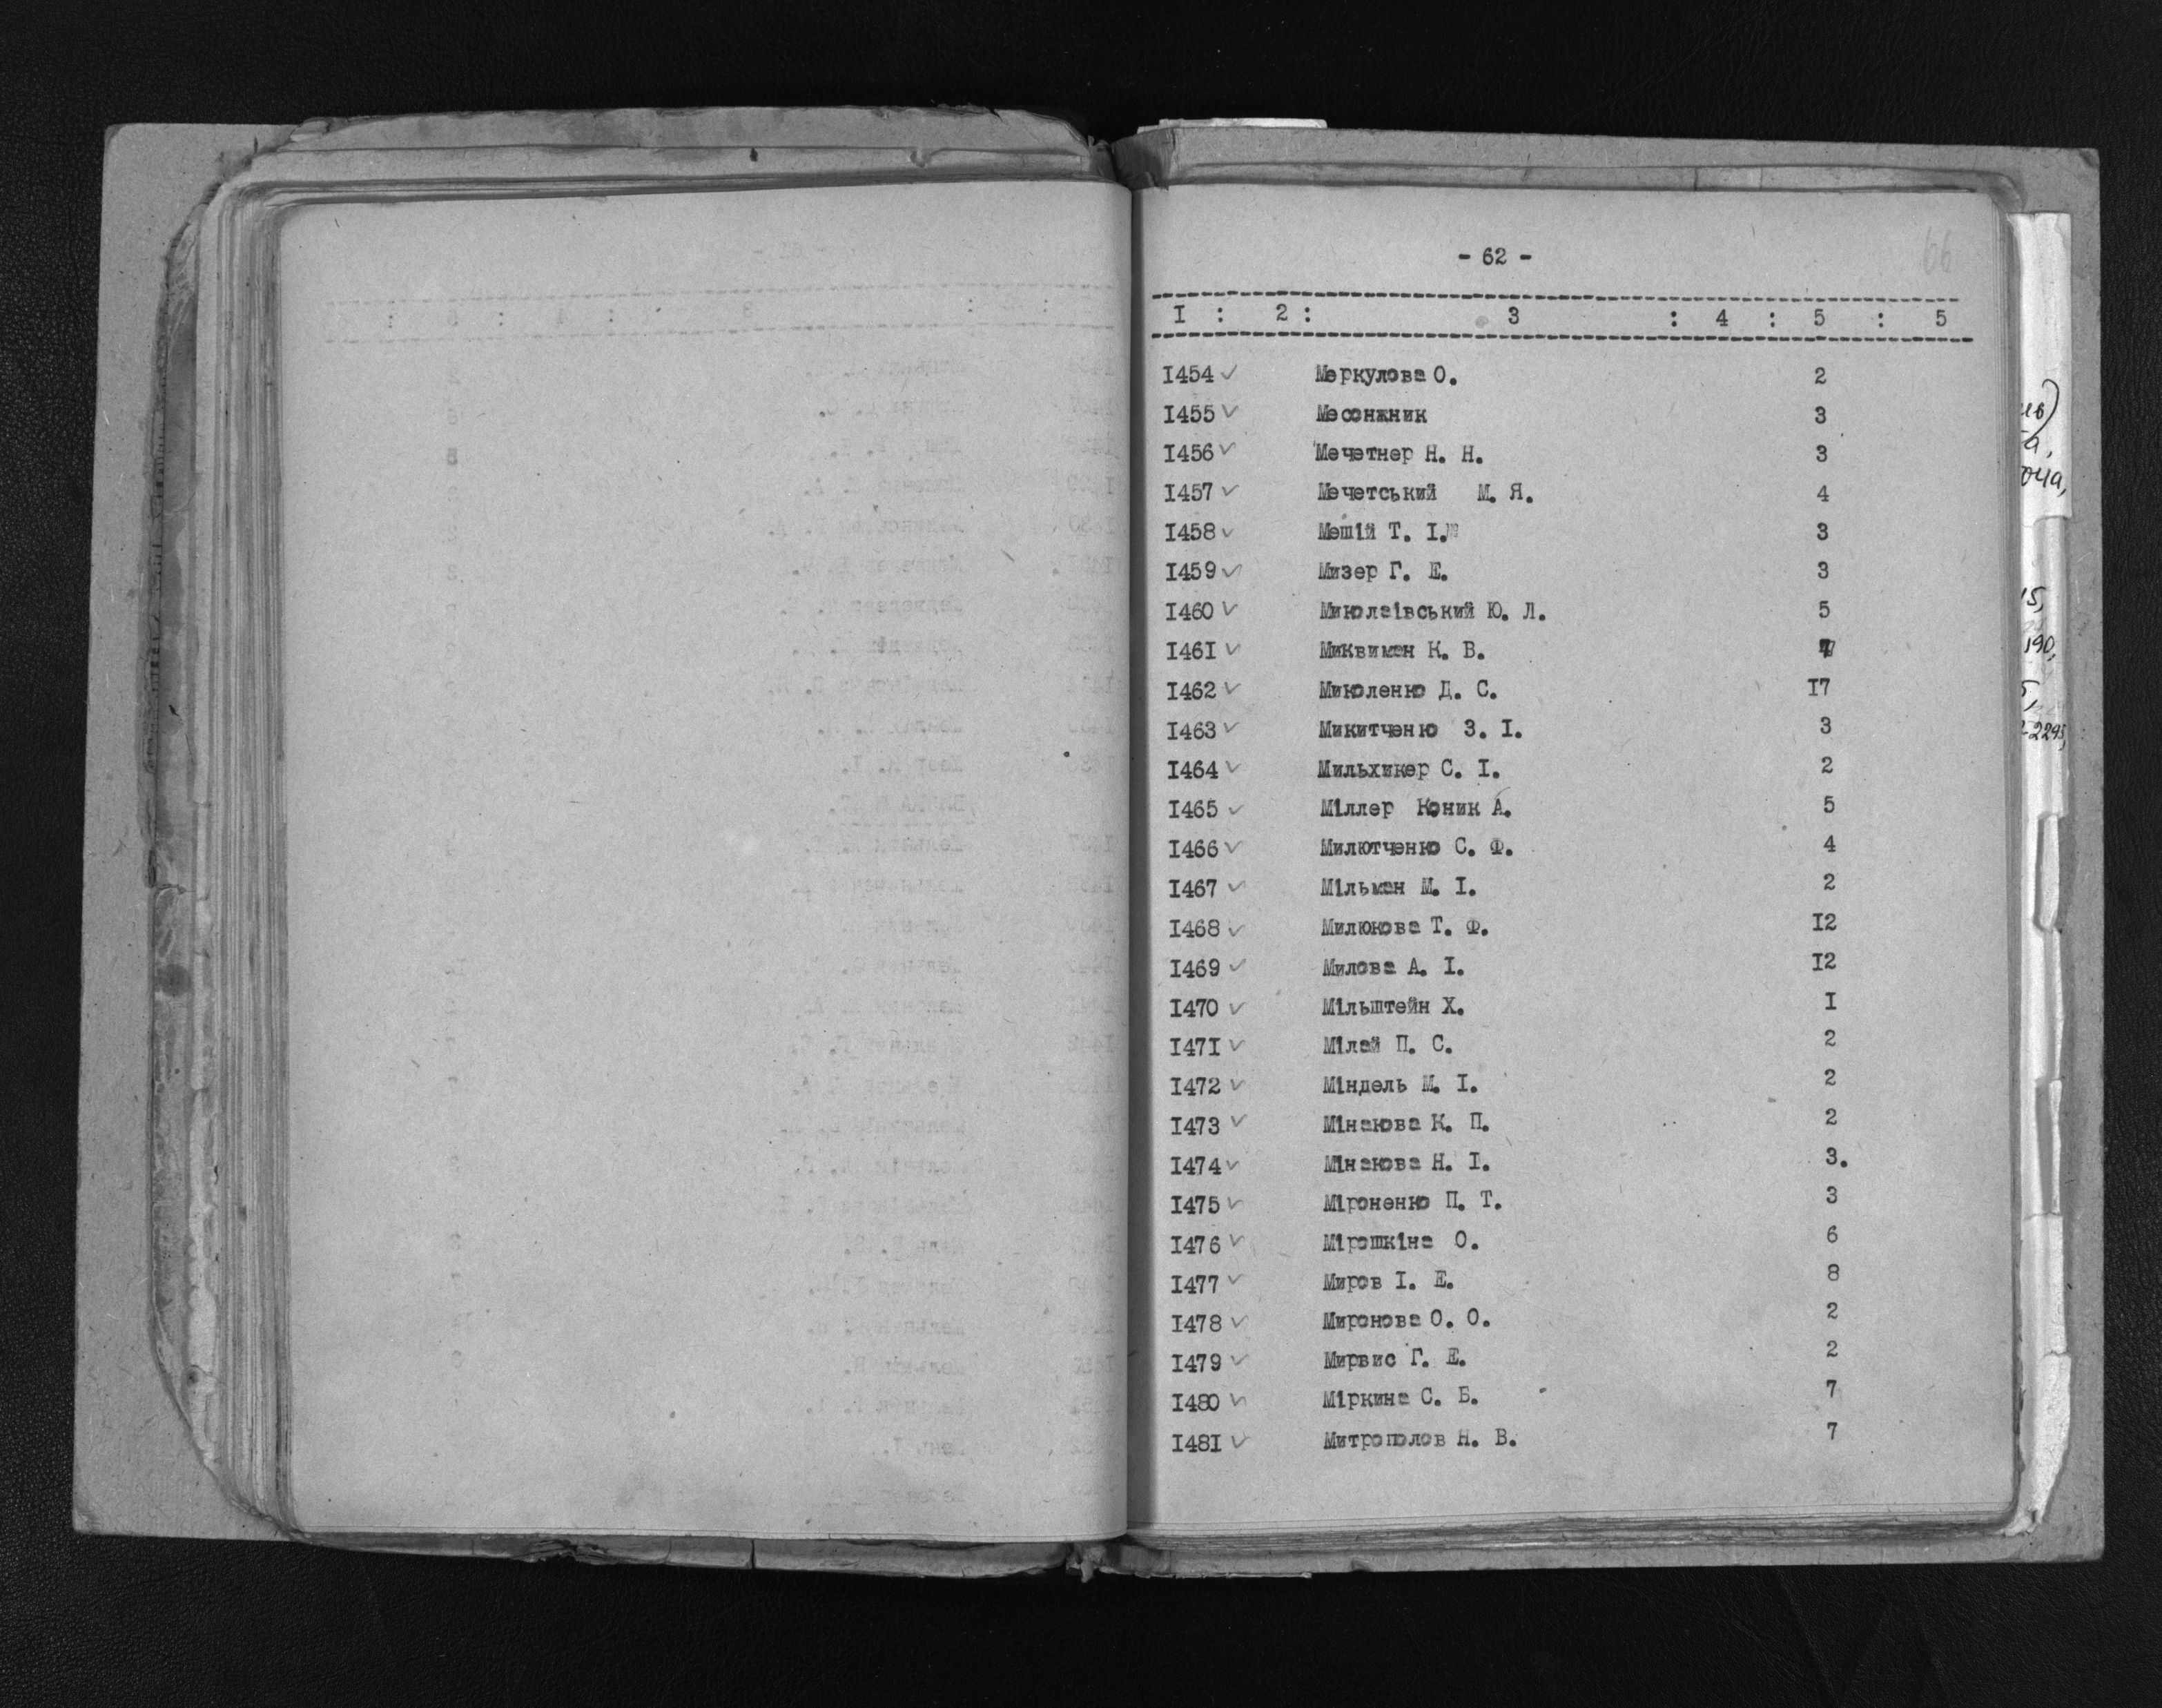 - 62 -
66
I : 2 : 3 : 4 : 5 : 5
I454 ✓ Меркулова О. 2
I455 ✓ Месонжник 3
I456 ✓ Мечетнер Н. Н. 3
I457 ✓ Мечетський М. Я. 4
I458 ✓ Мешій Т. І. 3
I459 ✓ Мизер Г. Е. 3
I460 ✓ Миколаівський Ю. Л. 5
I461 ✓ Миквиман К. В.
I462 ✓ Миколенко Д. С. I7
I463 ✓ Микитченко З. І. 3
I464 ✓ Мильхикер С. І. 2
I465 ✓ Міллер Коник А. 5
I466 ✓ Милютченко С. Ф. 4
I467 ✓ Мільман М. І. 2
I468 ✓ Милюкова Т. Ф. I2
I469 ✓ Милова А. І. I2
I470 ✓ Мільштейн Х. I
I471 ✓ Мілай П. С. 2
I472 ✓ Міндель М. І. 2
I473 ✓ Мінакова К. П. 2
I474 ✓ Мінакова Н. І. 3.
I475 ✓ Міроненко П. Т. 3
I476 ✓ Мірошкіна О. 6
I477 ✓ Миров І. Е. 8
I478 ✓ Миронова О. О. 2
I479 ✓ Мирвис Г. Е. 2
I480 ✓ Міркина С. Б. 7
I481 ✓ Митрополов Н. В. 7